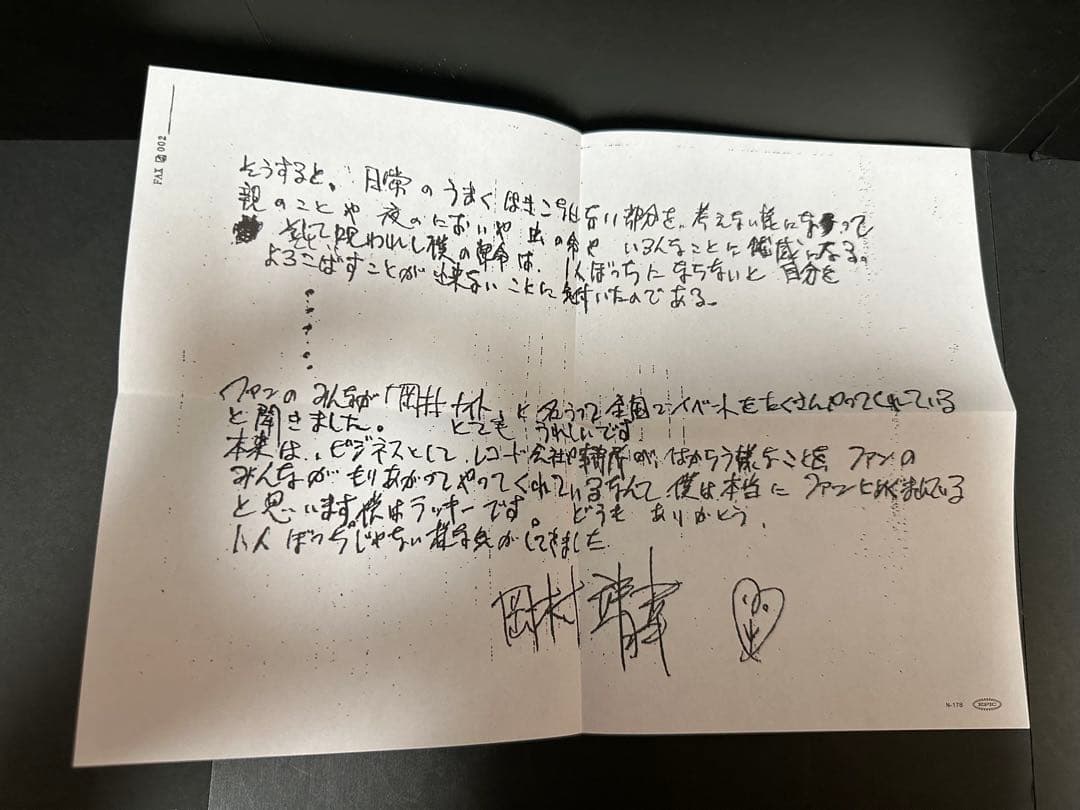 FAX 002
そうすると、日常のうまくはきこなせない部分を、考えない様になって
親のことや 夜のにおいや 虫の命や いろんなことに敏感になる。
そして呪われし僕の運命は、1人ぼっちにならないと 自分を
よろこばすことが 出来ないことに気付いたのである。
ファンのみんなが「岡村ナイト」と名うって全国でイベントをたくさんやってくれている
と聞きました。 とても うれしいです
本来は、ビジネスとして、レコード会社や事務所が、はからう様なことを、ファンの
みんなが もりあがってやってくれているなんて、僕は本当に ファンにめぐまれている
と思います。僕はラッキーです。 どうも ありがとう。
1人ぼっちじゃない様な気がしてきました
岡村靖幸
N-178 EPIC